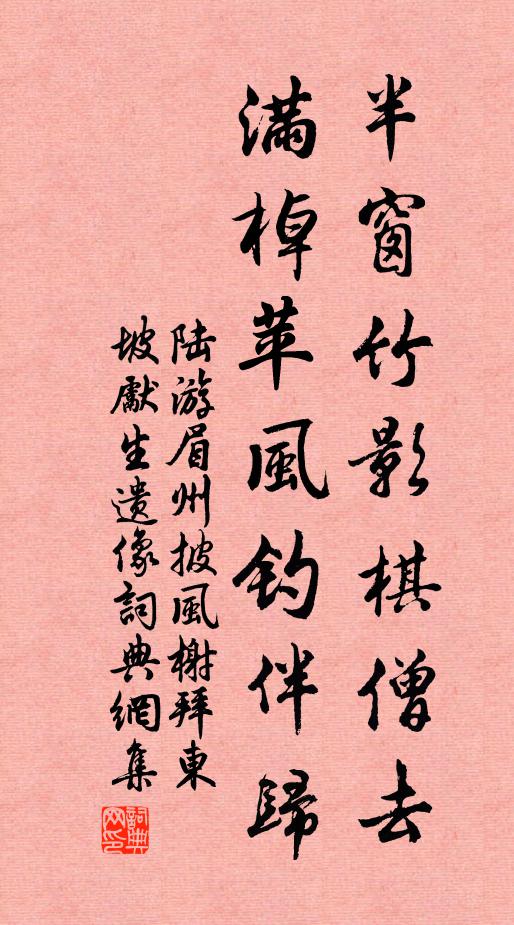 半窗竹影棋僧去
滿棹苹風釣伴歸
陆游眉州披風榭拜東
坡獻生遺像詞典網集
詞典网印